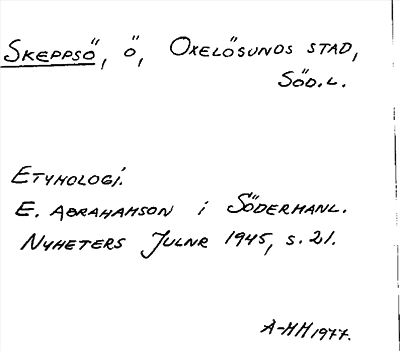 SKEPPSÖ, Ö, OXELÖSUNDS STAD,
SÖD.L.
ETYMOLOGI.
E. ABRAHAMSON i SÖDERMANL.
NYHETERS JULNR 1945, S. 21.
A-MH 1977.